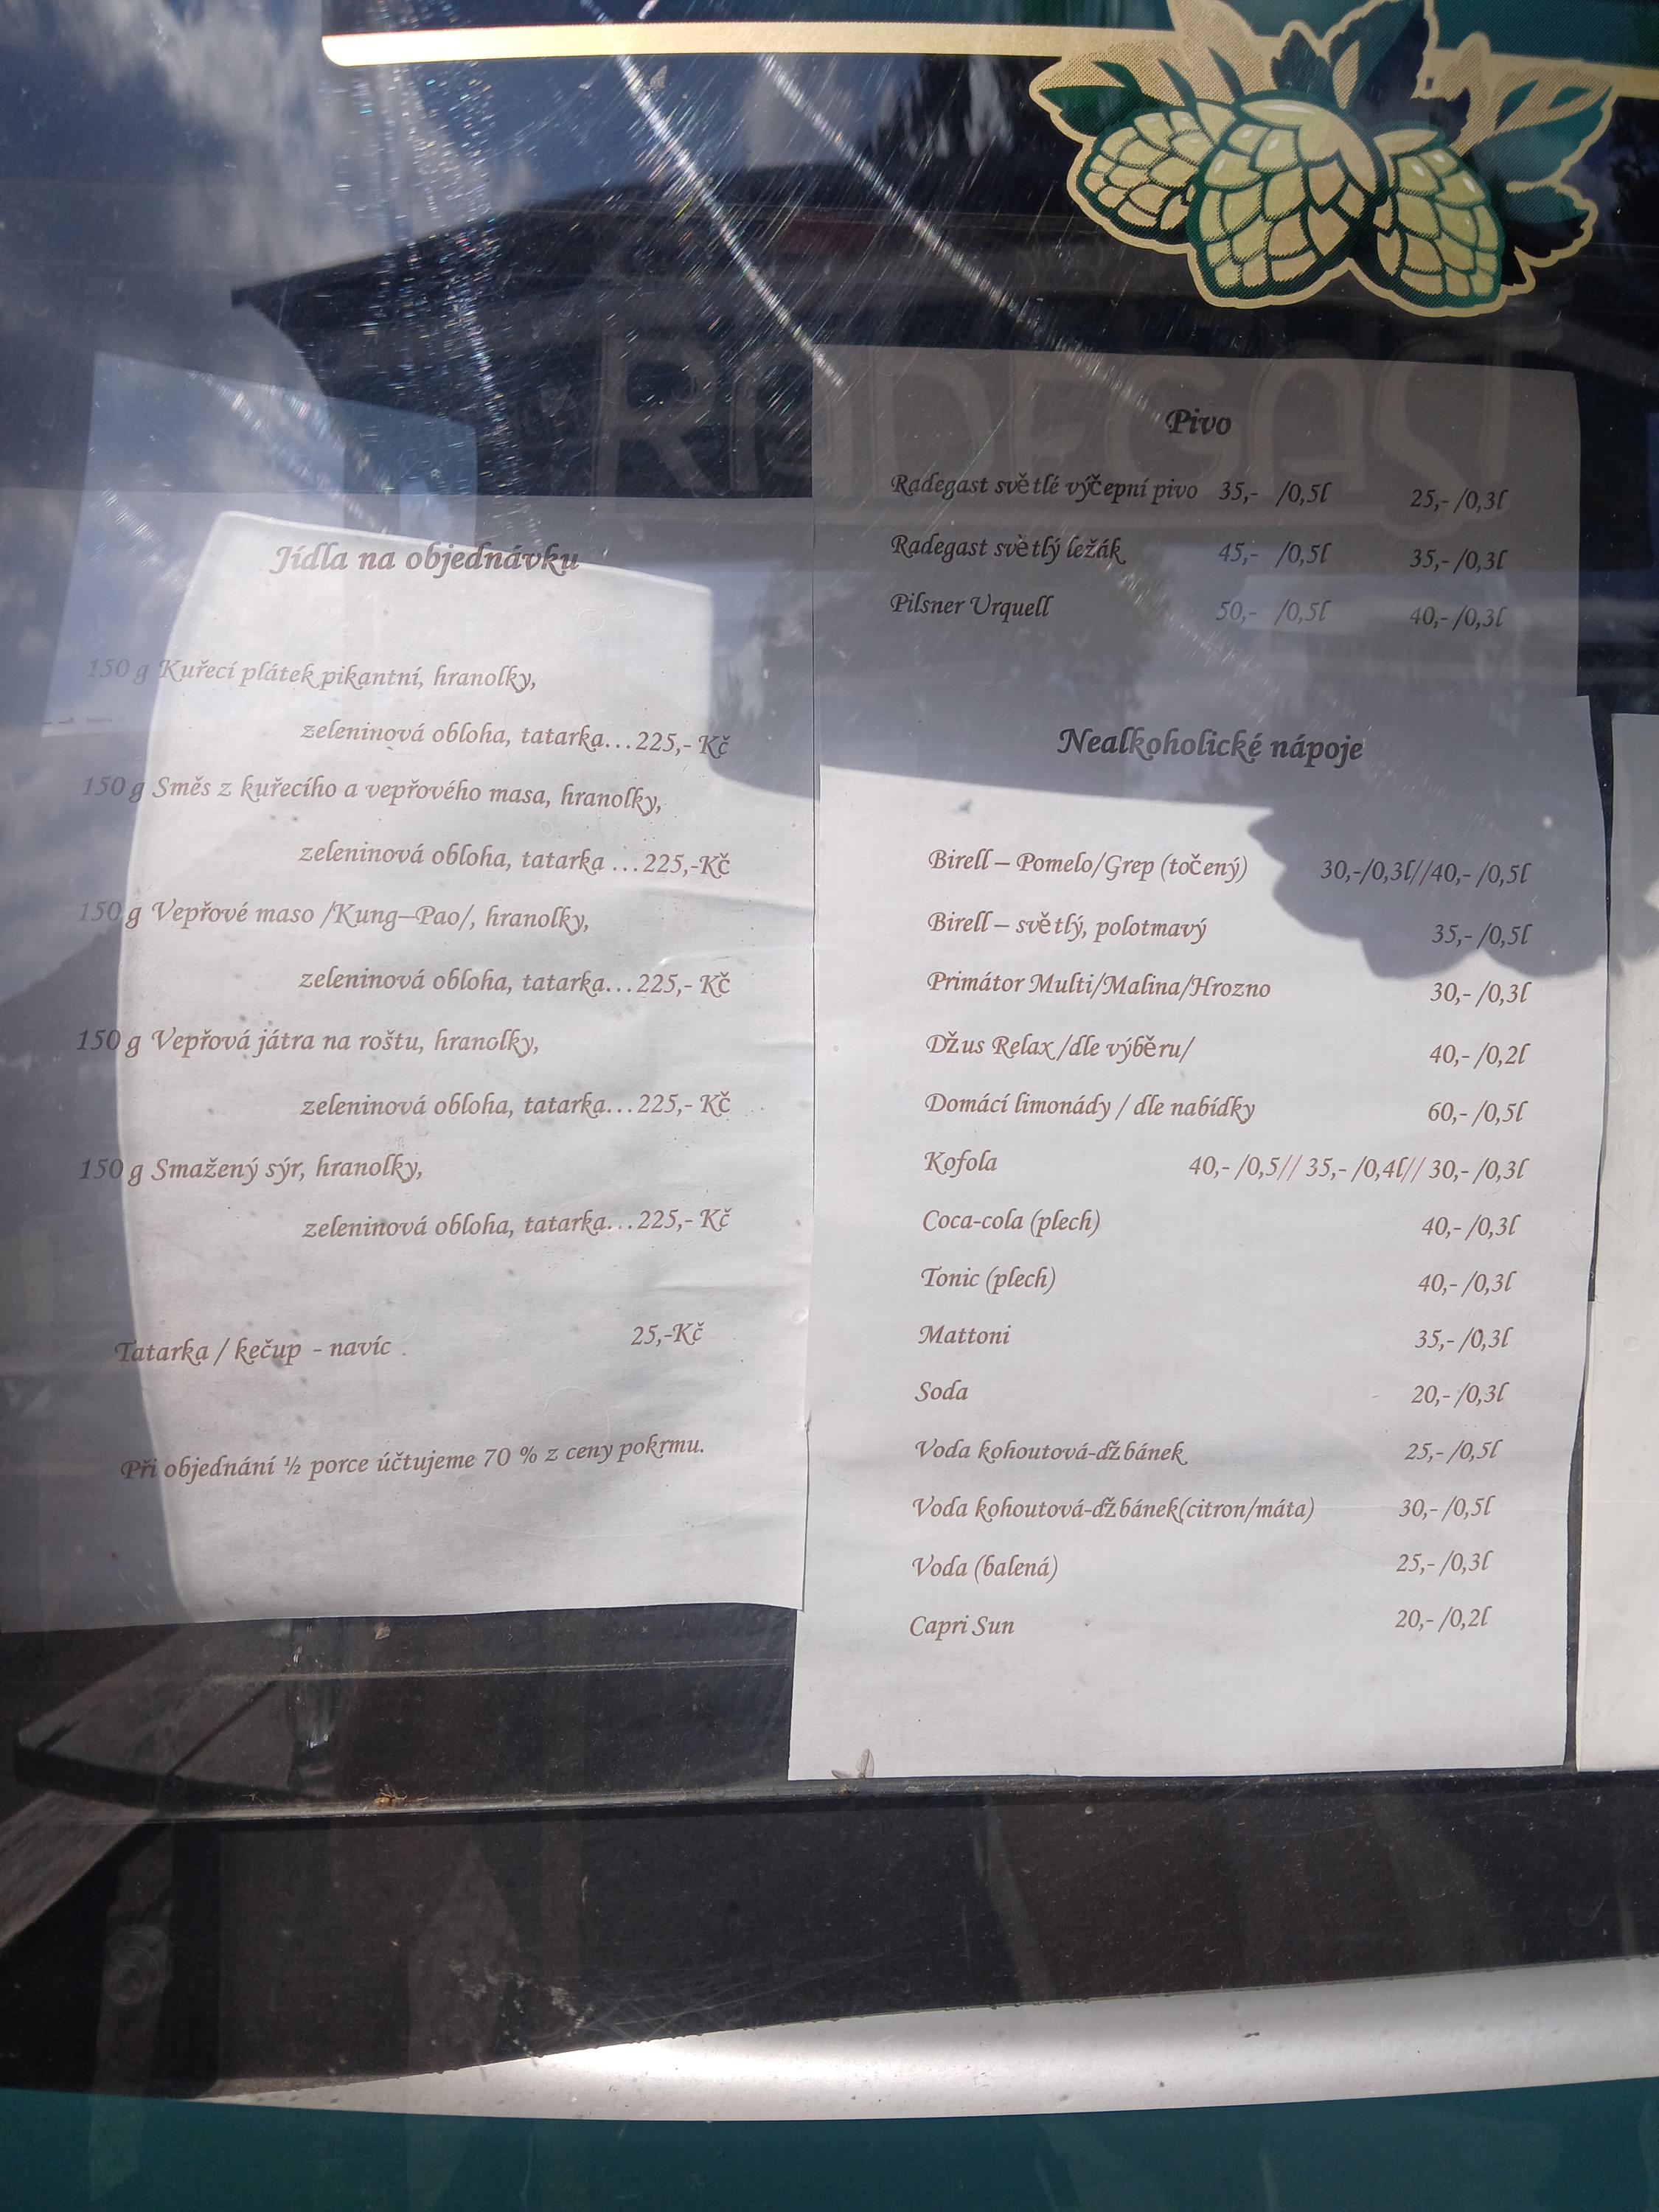 RADEGAST
Jídla na objednávku
150 g Kuřecí plátek pikantní, hranolky,
zeleninová obloha, tatarka...225,- Kč
150 g Směs z kuřecího a vepřového masa, hranolky,
zeleninová obloha, tatarka ...225,-Kč
150 g Vepřové maso /Kung–Pao/, hranolky,
zeleninová obloha, tatarka...225,- Kč
150 g Vepřová játra na roštu, hranolky,
zeleninová obloha, tatarka...225,- Kč
150 g Smažený sýr, hranolky,
zeleninová obloha, tatarka...225,- Kč
Tatarka / kečup - navíc 25,-Kč
Při objednání ½ porce účtujeme 70 % z ceny pokrmu.
Pivo
Radegast světlé výčepní pivo 35,- /0,5l 25,- /0,3l
Radegast světlý ležák 45,- /0,5l 35,- /0,3l
Pilsner Urquell 50,- /0,5l 40,- /0,3l
Nealkoholické nápoje
Birell – Pomelo/Grep (točený) 30,-/0,3l//40,- /0,5l
Birell – světlý, polotmavý 35,- /0,5l
Primátor Multi/Malina/Hrozno 30,- /0,3l
Džus Relax /dle výběru/ 40,- /0,2l
Domácí limonády / dle nabídky 60,- /0,5l
Kofola 40,- /0,5// 35,- /0,4l// 30,- /0,3l
Coca-cola (plech) 40,- /0,3l
Tonic (plech) 40,- /0,3l
Mattoni 35,- /0,3l
Soda 20,- /0,3l
Voda kohoutová-džbánek 25,- /0,5l
Voda kohoutová-džbánek(citron/máta) 30,- /0,5l
Voda (balená) 25,- /0,3l
Capri Sun 20,- /0,2l